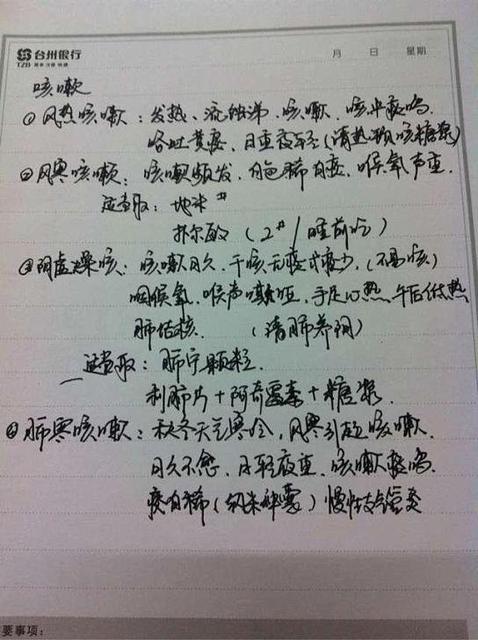 台州银行
TZB 简单 方便 快捷
月 日 星期
咳嗽
①风热咳嗽：发热、流浊涕、咳嗽、咳中痰鸣
咯吐黄痰、日重夜轻（清热颗 咳糖浆）
②风寒咳嗽：咳嗽频发、白色稀白痰、喉氧声重.
适当取：地米#
扑尔敏（2#/睡前吃）
③阴虚燥咳：咳嗽日久、干咳无痰或痰少、（不易咳）
咽喉氧、喉声嘶哑、手足心热、午后低热
肺结核. （清肺养阴）
适当取：肺宁颗粒.
利肺片+阿奇霉素+糖浆.
④肺寒咳嗽：秋冬天气寒冷，风寒引起咳嗽.
日久不愈，日轻夜重、咳嗽痰鸣.
痰白稀（ ）慢性支气管炎
要事项：